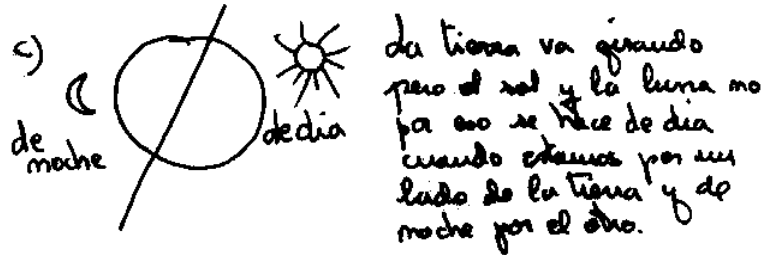 c)
de
noche
de dia
La tierra va girando
pero el sol y la luna no
por eso se hace de dia
cuando estamos por un
lado de la tierra y de
noche por el otro.